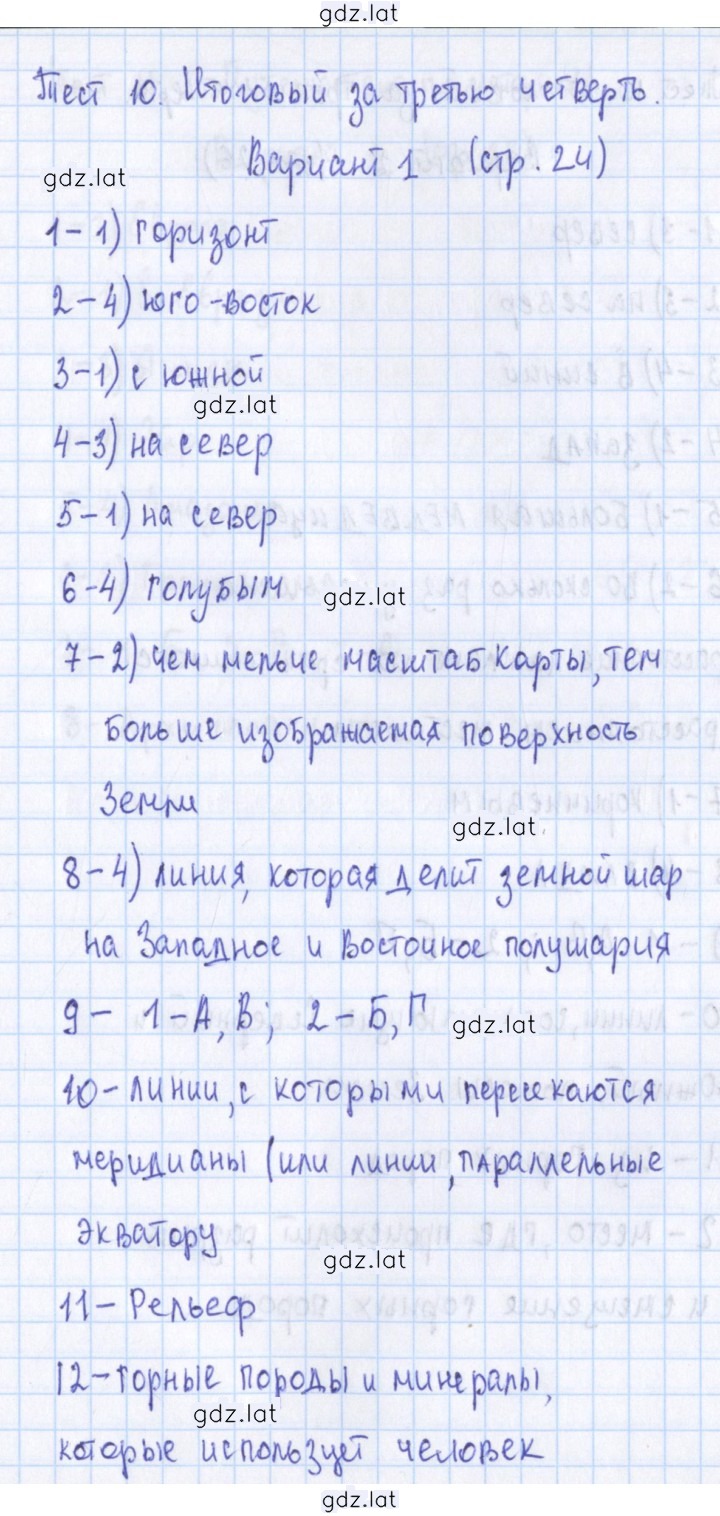 gdz.lat
Тест 10. Итоговый за третью четверть.
Вариант 1 (стр. 24)
gdz.lat
1-1) горизонт
2-4) юго-восток
3-1) с южной
gdz.lat
4-3) на север
5-1) на север
6-4) голубым
gdz.lat
7-2) чем мельче масштаб карты, тем
больше изображаемая поверхность
Земли
gdz.lat
8-4) линия, которая делит земной шар
на Западное и Восточное полушария
9- 1-А, В; 2-Б, Г
gdz.lat
10-линии, с которыми пересекаются
меридианы (или линии, параллельные
экватору
gdz.lat
11-Рельеф
12-горные породы и минералы,
gdz.lat
которые использует человек
gdz.lat